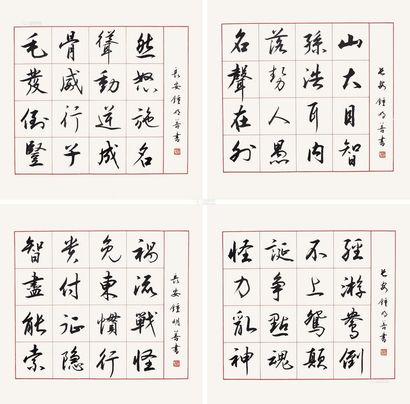 毛骨聳然
發威動怒
倒行逆施
豎子成名
長安鍾明善書
名落孫山
聲勢浩大
在人耳目
外愚内智
長安鍾明善書
智貴免禍
盡付東流
能征慣戰
索隱行怪
長安鍾明善書
怪誕不經
力爭上游
亂點鴛鴦
神魂顛倒
長安鍾明善書